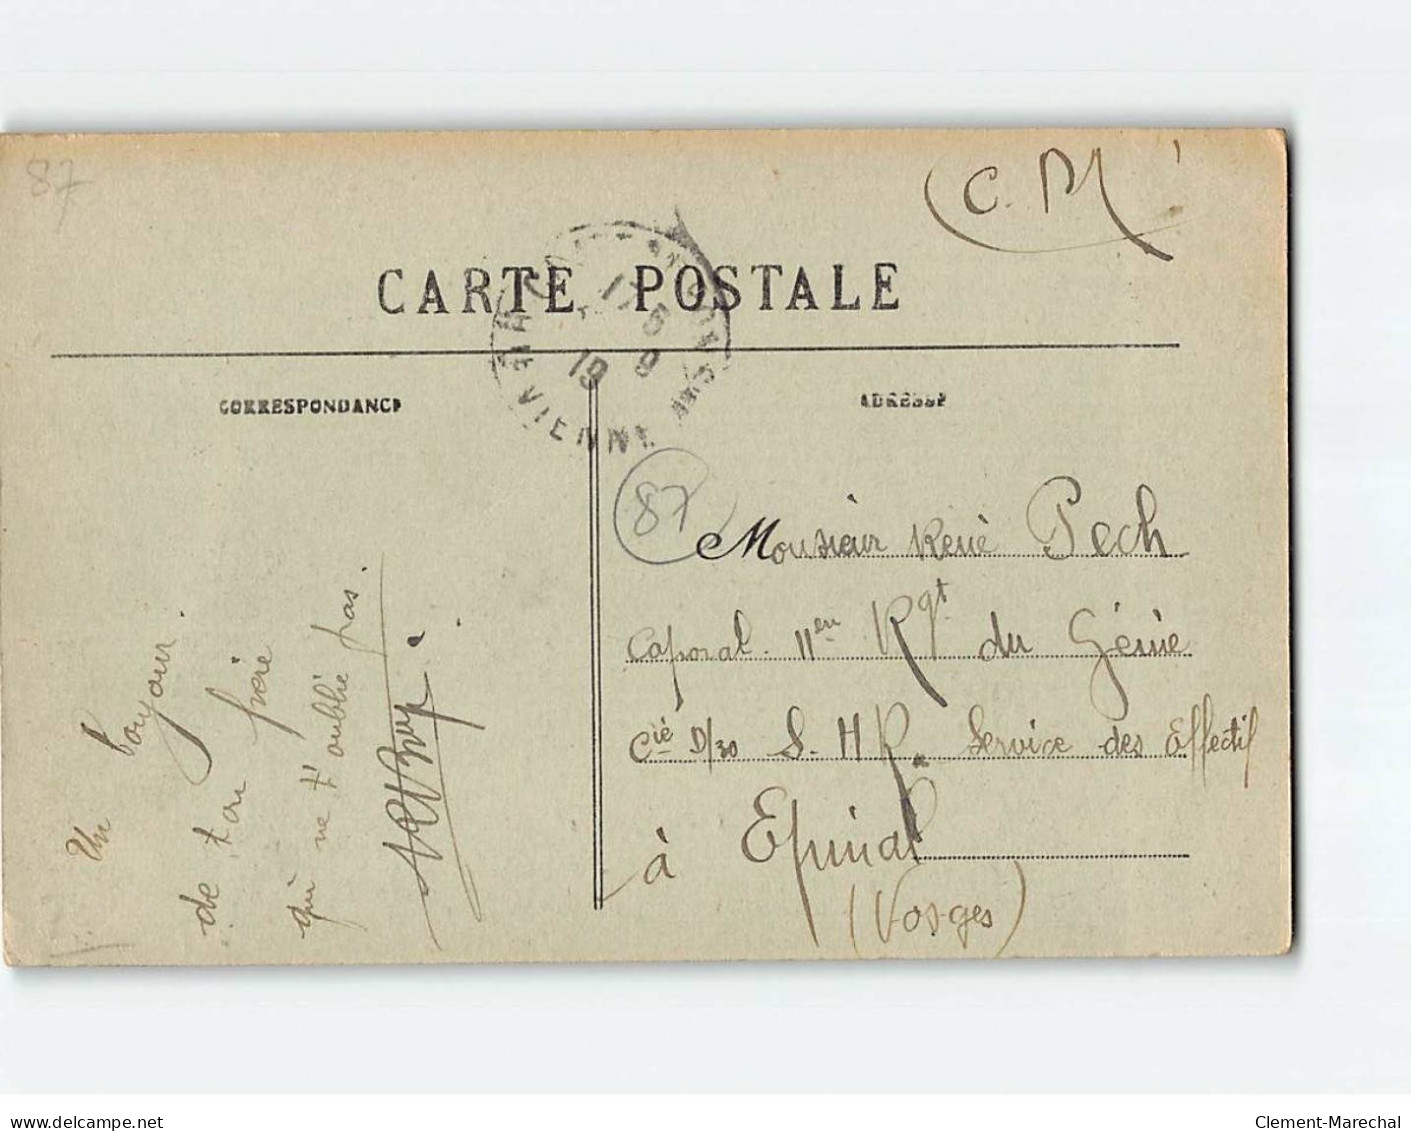 87
C. M
CARTE POSTALE
17 - 5
19
9
VIENNE
CORRESPONDANCE
ADRESSE
87
Un bonjour.
de ton frère
qui ne t'oublie pas.
Monsieur René Pech
Caporal 11en Rgt du Génie
Cié D/30 S. H R. Service des Effectif
à Epinal
(Vosges)
www.delcampe.net
Clement-Marechal